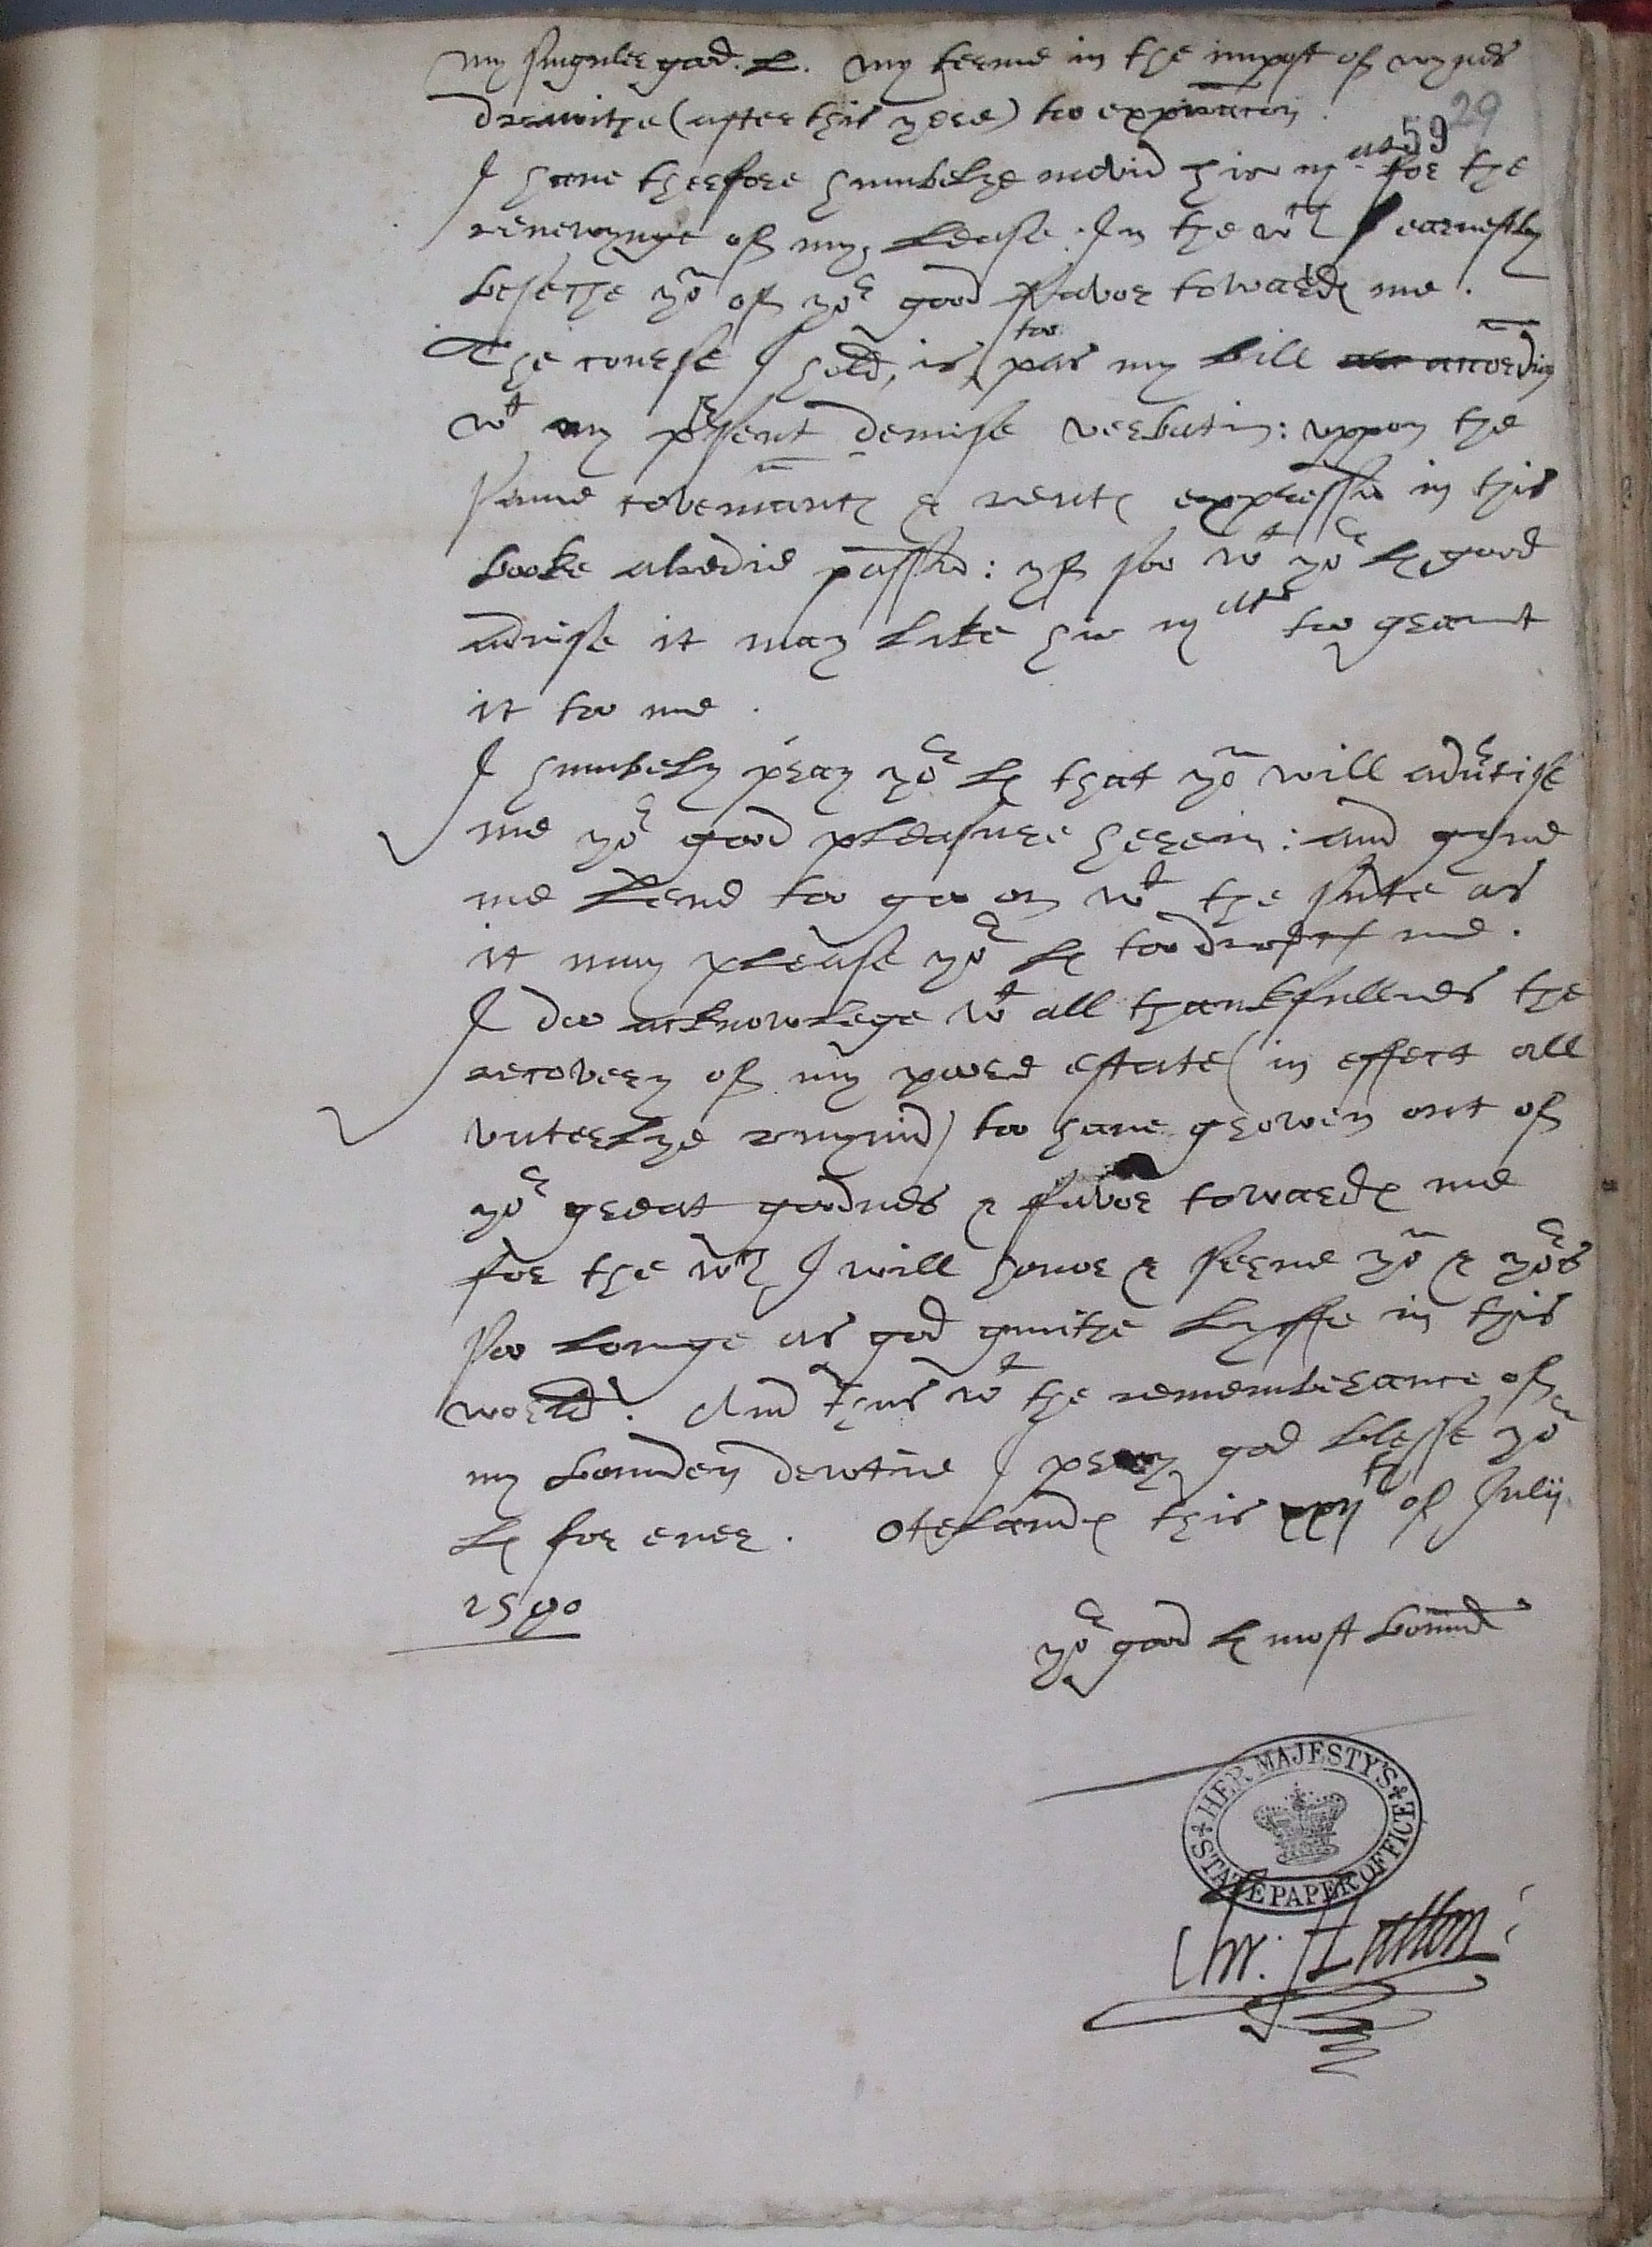 my singuler good L. My terme in the impost of wynes
drawithe (after this yere) too expiracon.
59 29
I have therfore humbelye movid hir mats for the
renewynge of my Lease. In the wch I earnestly
beseche yo of yor good favor towards me.
The course I hold, is too pas my bill according
wt my present demise verbatim: uppon the
same covenants & rents expressid in this
booke alredie passid: yf soo wt yor L. good
advise it may like hir mate too graunt
it too me.
I humbely pray yor L. that yo will advertise
me yor good pleasure herein: and gyve
me leave too goo on wt the sute as
it may please yor L. too direct me.
I doo acknowlege wt all thankfullnes the
recovery of my poore estate (in effect all
utterlye ruynid) too have growen out of
yor great goodnes & favor towards me
for the wch I will honor & serve yo & yors
soo longe as god giveithe lyffe in this
world. And thus wt the remembrance of
my bounden dewtie I pray god blesse yor
L. for ever. Otelands this xxijth of Julij
1590
yor good L. most bounde
HER MAJESTY'S STATE PAPER OFFICE
Chr: Hatton